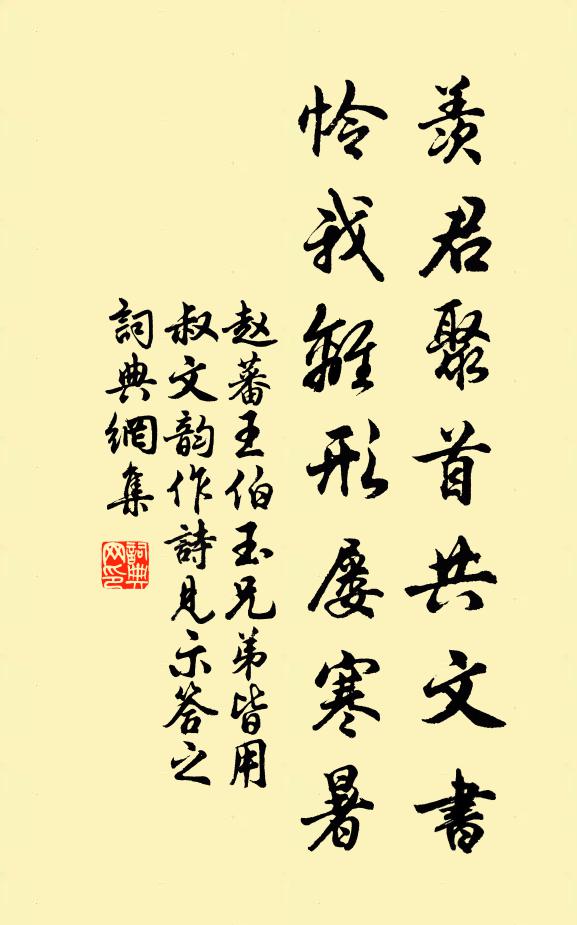 羨君聚首共文書
憐我離形屢寒暑
赵蕃王伯玉兄弟皆用
叔文韵作詩見示答之
詞典網集
詞典网印